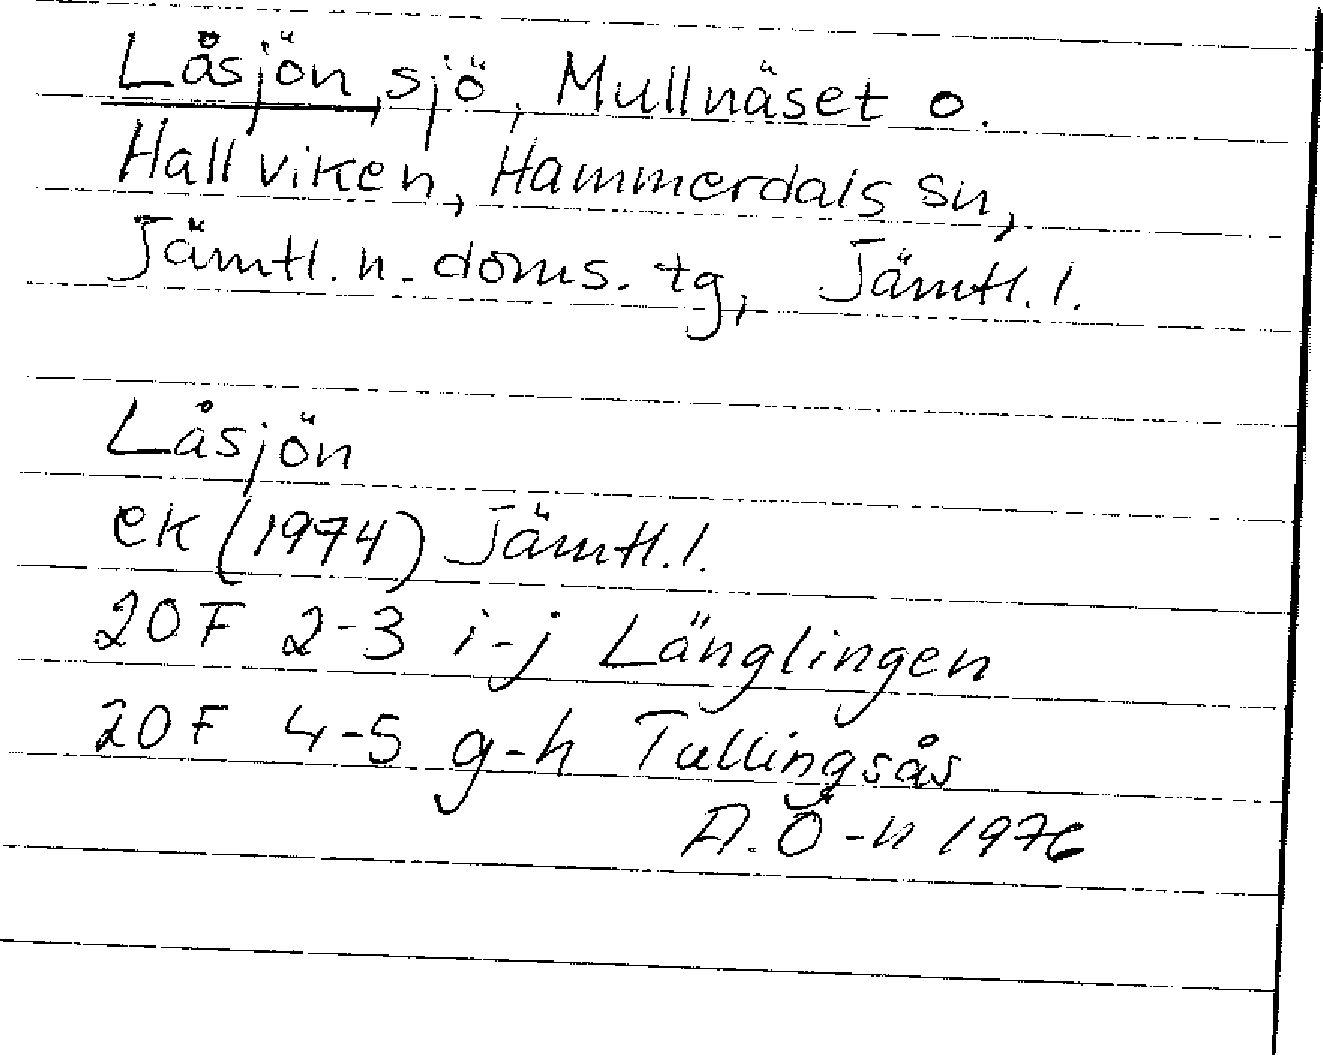 Låsjön, sjö, Mullnäset o.
Hallviken, Hammerdals sn,
Jämtl. n. doms. tg, Jämtl. l.
Låsjön
ek (1974) Jämtl. l.
20 F 2-3 i-j Länglingen
20 F 4-5 g-h Tullingsås
A. Ö-n 1976